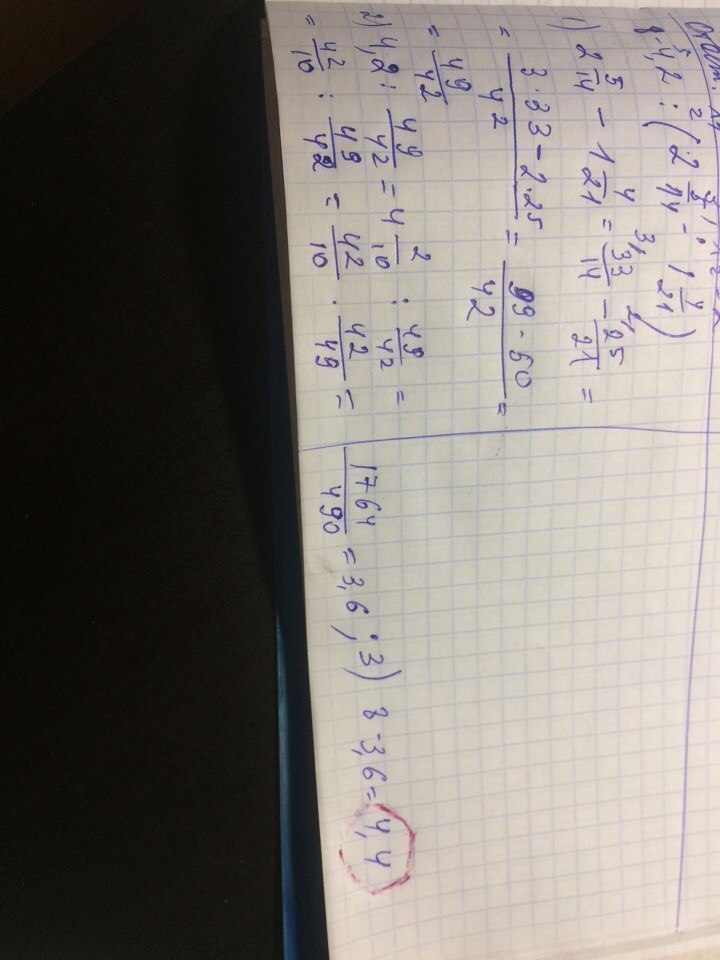 8 - 4,2 : (2 5/14 - 1 4/21)
1) 2 5/14 - 1 4/21 = 33/14 - 25/21 =
= (3·33 - 2·25)/42 = (99 - 50)/42 =
= 49/42
2) 4,2 : 49/42 = 4 2/10 : 49/42 =
= 42/10 : 49/42 = 42/10 · 42/49 =
1764/490 = 3,6 ; 3) 8 - 3,6 = 4,4